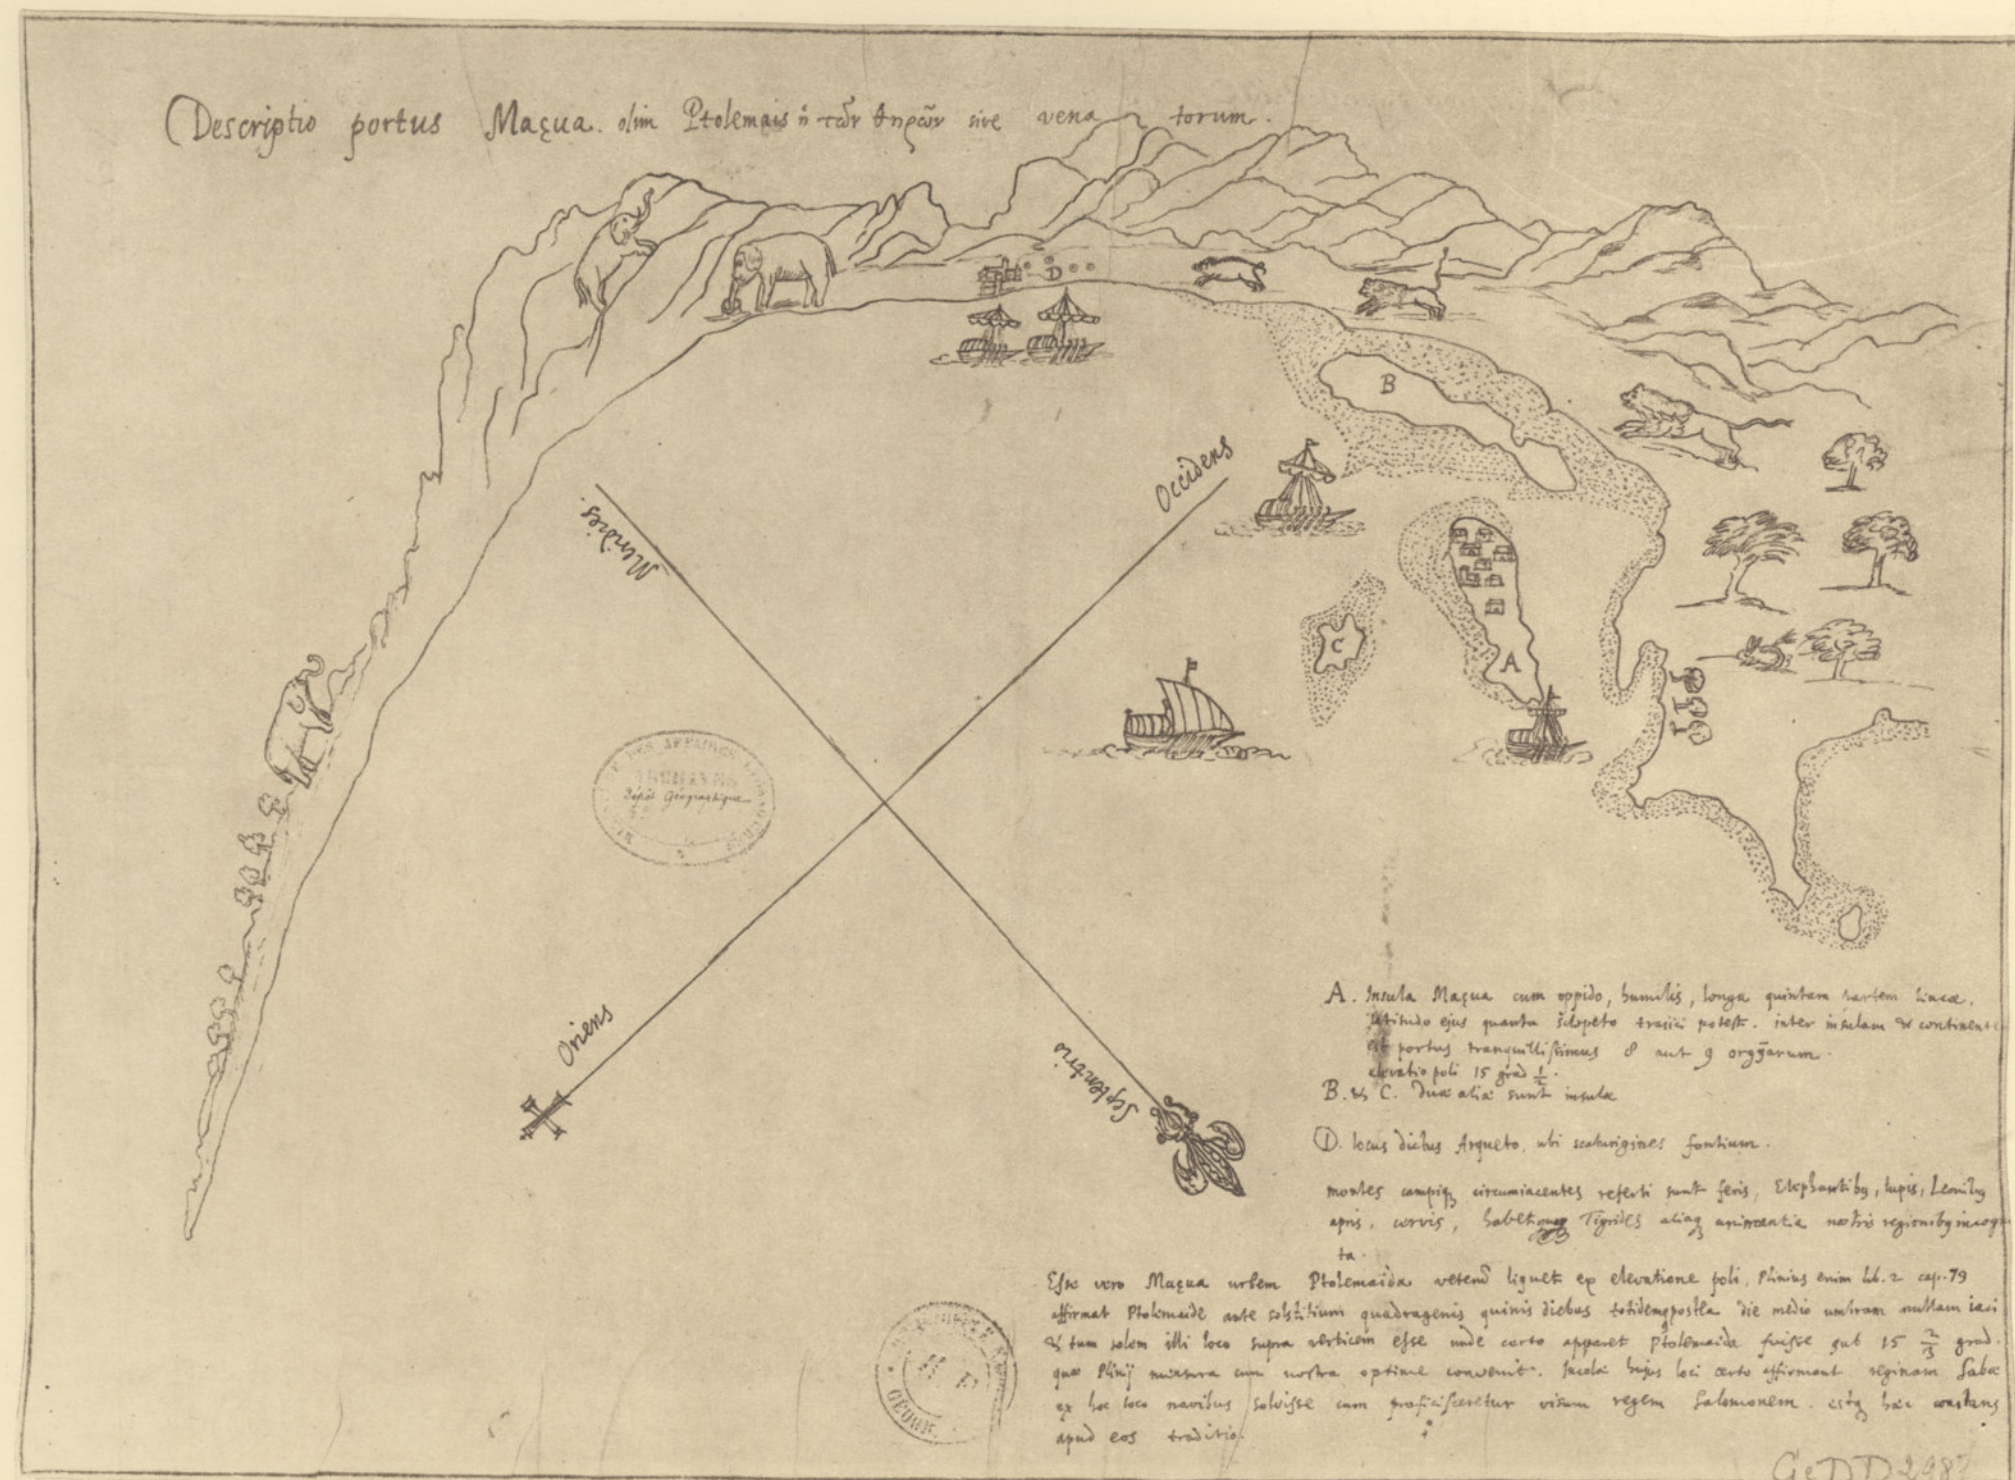 Descriptio portus Maçua. olim Ptolemais ἡ τῶν θηρῶν sive vena torum.
D
B
Occidens
Meridies.
C
A
Dépôt Géographique
Oriens
Septentrio
A. Insula Maçua cum oppido, humilis, longa quintam partem
latitudo ejus quanta sclopeto traiici potest. inter insulam & continente
est portus tranquillissimus 8 aut 9 orgyarum.
elevatio poli 15 grad 1/2.
B. & C. duæ aliæ sunt insulæ
D. locus dictus Arqueto, ubi scaturigines fontium.
montes campiq circumiacentes referti sunt feris, Elephantibq, lupis, Leonibq
apris, cervis, habet Tigrides aliaq animantia nostris regionibq incogni
ta.
Esse vero Maçua urbem Ptolemaida veterem liquet ex elevatione poli, Plinius enim lib. 2 cap. 79
affirmat Ptolemaide ante solstitium quadragenis quinis diebus totidemq postea die medio umbram nullam iaci
& tum solem illi loco supra verticem esse unde certo apparet Ptolemaida fuisse sub 15 2/3 grad.
quæ Plinij mensura cum nostra optime convenit. Incolæ hujus loci certo affirmant reginam Sabæ
ex hoc loco navibus solvisse cum proficisceretur visum regem Salomonem. estq hæc constans
apud eos traditio.
GÉOGR.
Ge DD 2987